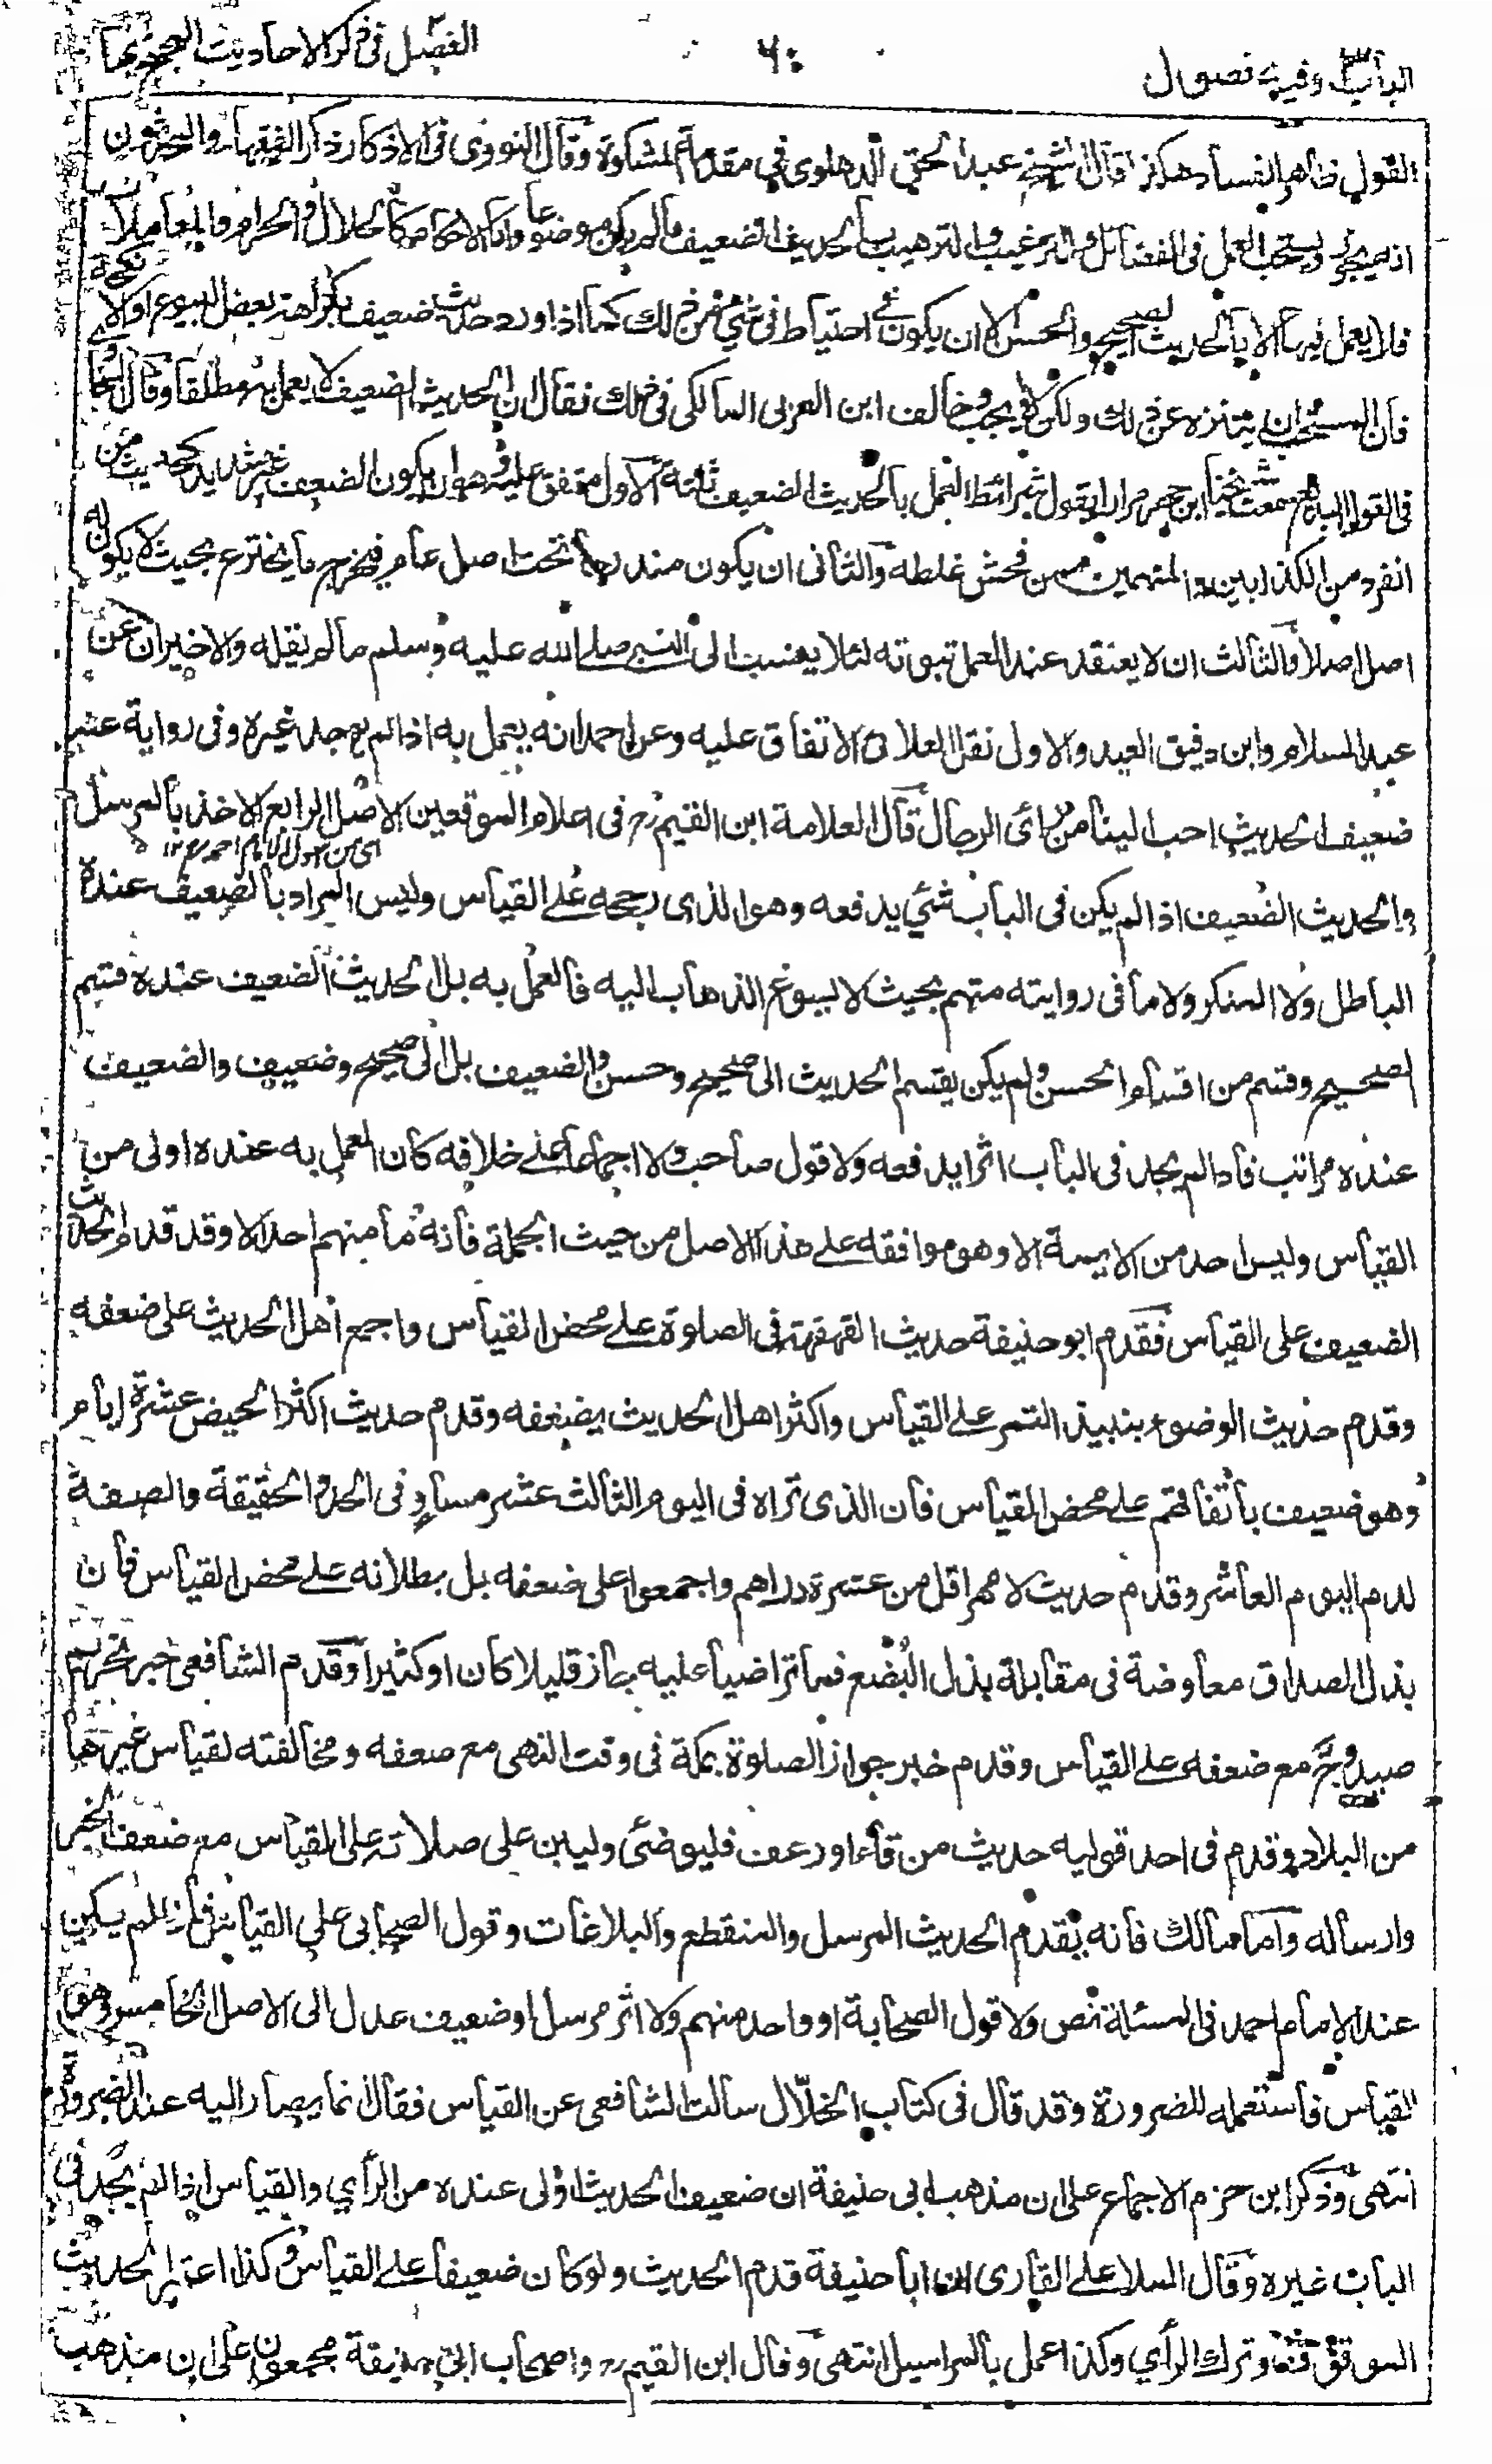 الباب وفيه فصول
٦٠
الفصل فى ذكر الاحاديث
القول ظاهر الفساد هكذا قال الشيخ عبد الحق الدهلوى في مقدمة المشكوة وقال النووى فى الاذكار ذكر الفقهاء والمحدثون
انه يجوز ويستحب العمل فى الفضائل والترغيب والترهيب بالحديث الضعيف ما لم يكن موضوعا واما الاحكام كالحلال والحرام والمعاملات
فلا يعمل فيها الا بالحديث الصحيح والحسن الا ان يكون فى احتياط فى شئ من ذلك كما اذا ورد حديث ضعيف بكراهة بعض البيوع او الانكحة
فان المستحب ان يتنزه عن ذلك ولكن لا يجب وخالف ابن العربى المالكى فى ذلك فقال ان الحديث الضعيف لا يعمل به مطلقا وقال السخاوى
فى القول البديع سمعت شيخنا ابن حجر مرارا يقول شرائط العمل بالحديث الضعيف ثلثة الاول متفق عليه وهو ان يكون الضعف غير شديد كحديث من
انفرد من الكذابين والمتهمين ممن فحش غلطه والثانى ان يكون مندرجا تحت اصل عام فيخرج ما يخترع بحيث لا يكون له
اصل اصلا والثالث ان لا يعتقد عند العمل ثبوته لئلا ينسب الى النبي صلى الله عليه وسلم ما لم يقله والاخيران عن
عبد السلام وابن دقيق العيد والاول نقل العلائى الاتفاق عليه وعن احمد انه يعمل به اذا لم يوجد غيره وفى رواية عنه
ضعيف الحديث احب الينا من رائ الرجال قال العلامة ابن القيم رح فى اعلام الموقعين الاصل الرابع الاخذ بالمرسل
اى من اصول الامام احمد رح ١٢
والحديث الضعيف اذا لم يكن فى الباب شئ يدفعه وهو الذى رجحه على القياس وليس المراد بالضعيف عنده
الباطل ولا المنكر ولا ما فى روايته متهم بحيث لا يسوغ الذهاب اليه فالعمل به بل الحديث الضعيف عنده قسيم
الصحيح وقسم من اقسام الحسن ولم يكن يقسم الحديث الى صحيح وحسن والضعيف بل الى صحيح وضعيف والضعيف
عنده مراتب فاذا لم يجد فى الباب اثرا يدفعه ولا قول صاحب ولا اجماعا على خلافه كان العمل به عنده اولى من
القياس وليس احد من الايمة الا وهو موافقه على هذا الاصل من حيث الجملة فانه ما منهم احد الا وقد قدم الحديث
الضعيف على القياس فقدم ابو حنيفة حديث القهقهة فى الصلوة على محض القياس واجمع اهل الحديث على ضعفه
وقدم حديث الوضوء بنبيذ التمر على القياس واكثر اهل الحديث يضعفه وقدم حديث اكثر الحيض عشرة ايام
وهو ضعيف باتفاقهم على محض القياس فان الذى تراه فى اليوم الثالث عشر مساو فى الحد والحقيقة والصفة
لدم اليوم العاشر وقدم حديث لا مهر اقل من عشرة دراهم واجمعوا على ضعفه بل بطلانه على محض القياس فان
بذل الصداق معاوضة فى مقابلة بذل البُضع فما تراضيا عليه جاز قليلا كان او كثيرا وقدم الشافعى خبر تحريم
صيد وج مع ضعفه على القياس وقدم خبر جواز الصلوة بمكة فى وقت النهى مع ضعفه ومخالفته لقياس غيرها
من البلاد وقدم فى احد قوليه حديث من قاء او رعف فليوضئ وليبن على صلاته على القياس مع ضعف الخبر
وارساله واما مالك فانه يقدم الحديث المرسل والمنقطع والبلاغات وقول الصحابى على القياس فاذا لم يكن
عند الامام احمد فى المسئلة نص ولا قول الصحابة او واحد منهم ولا اثر مرسل او ضعيف عدل الى الاصل الخامس وهو
القياس فاستعمله للضرورة وقد قال فى كتاب الخلّال سالت الشافعى عن القياس فقال انما يصار اليه عند الضرورة
انتهى وذكر ابن حزم الاجماع على ان مذهب ابى حنيفة ان ضعيف الحديث اولى عنده من الرأي والقياس اذا لم يجد فى
الباب غيره وقال الملا على القارى ان ابا حنيفة قدم الحديث ولو كان ضعيفا على القياس وكذا اعتبر الحديث
الموقوف وترك الرأي وكذا عمل بالمراسيل انتهى وقال ابن القيم رح واصحاب ابى حنيفة مجمعون على ان مذهب